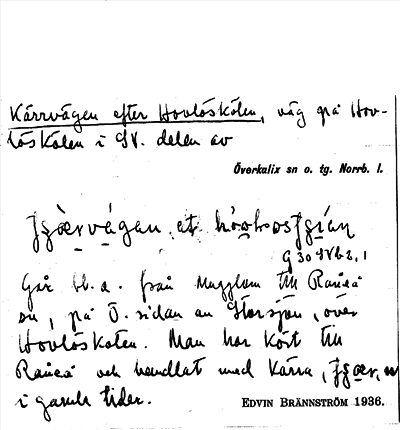 Kärrvägen efter Hovlöskölen, väg på Hov-
löskölen i SV. delen av
Överkalix sn o. tg. Norrb. l.
Går bl. a. från till Råneå
sn, på Ö. sidan av Storsjön, över
Hovlöskölen. Man har kört till
Råneå och handlat med kärra,
i gamla tider. EDVIN BRÄNNSTRÖM 1936.